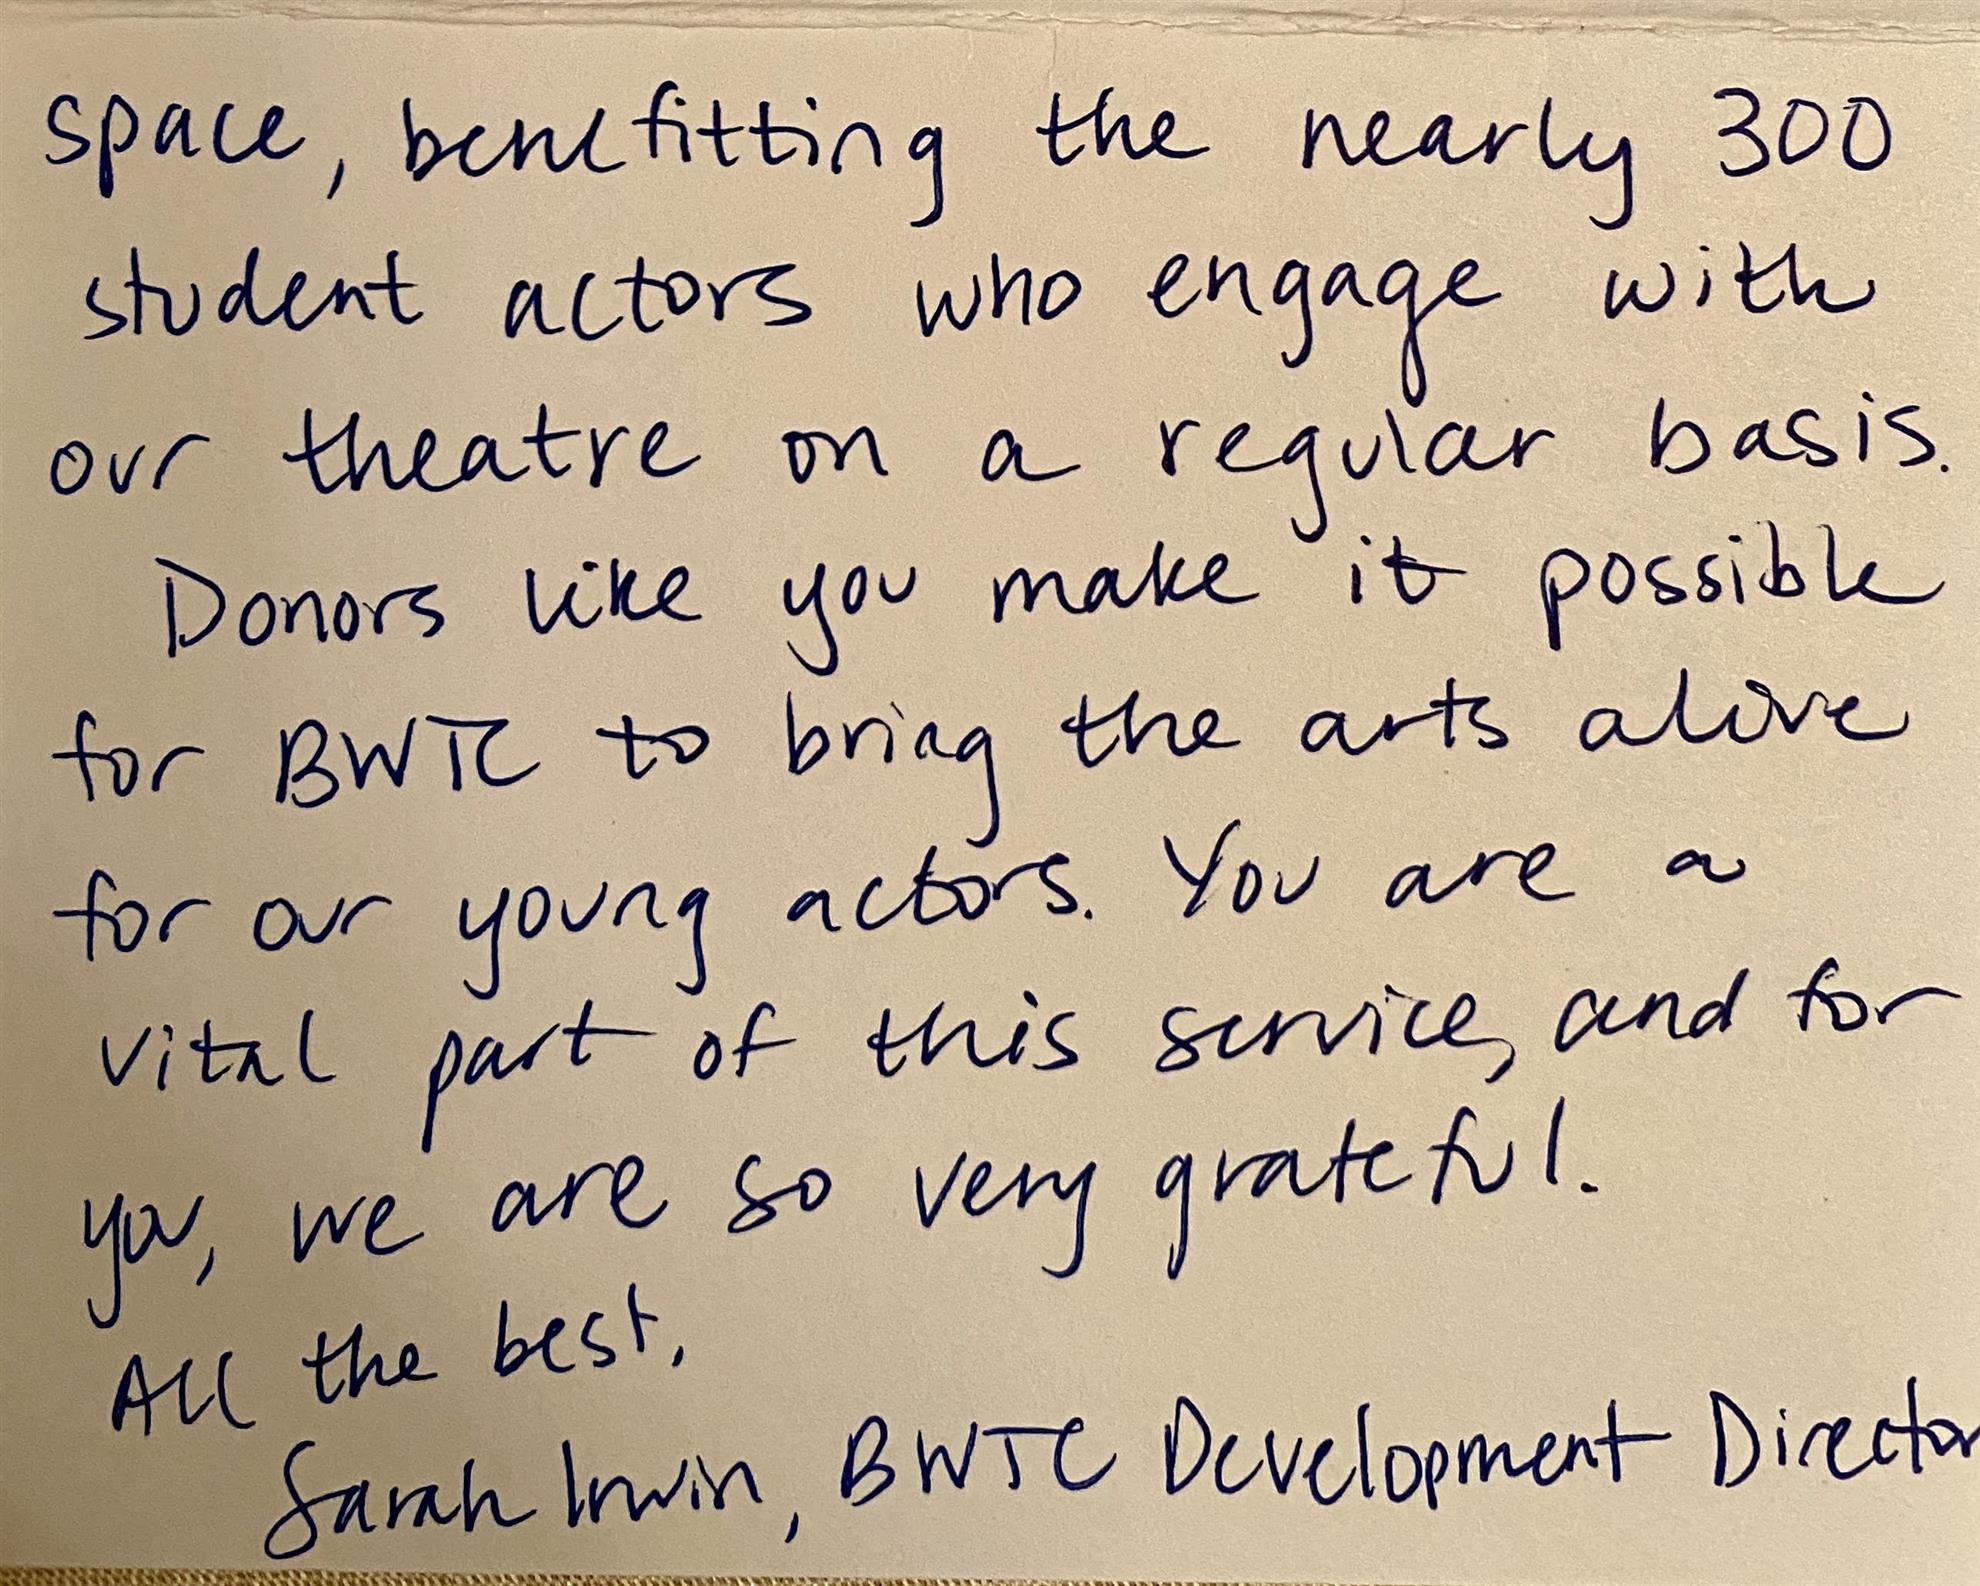 space, benefitting the nearly 300
student actors who engage with
our theatre on a regular basis.
Donors like you make it possible
for BWTC to bring the arts alive
for our young actors. You are a
vital part of this service, and for
you, we are so very grateful.
All the best,
Sarah Irwin, BWTC Development Director